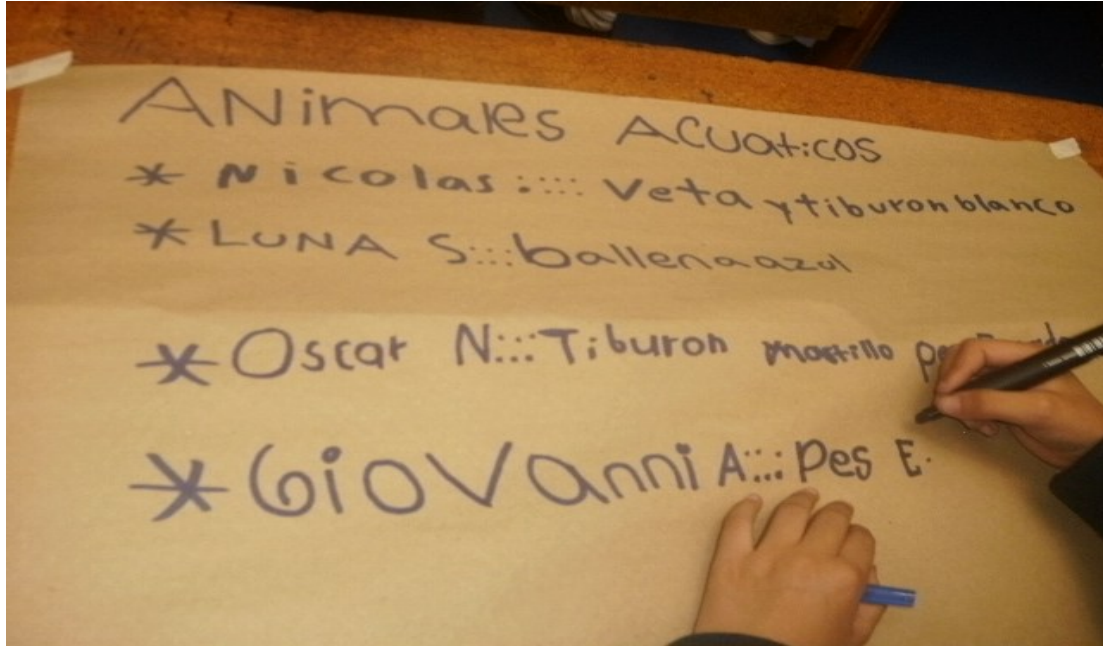 ANimales ACUaticos
* Nicolas :::: Veta y tiburon blanco
* LUNA S:::ballena azul
* Oscar N:::Tiburon martillo
* GioVanni A::: Pes E